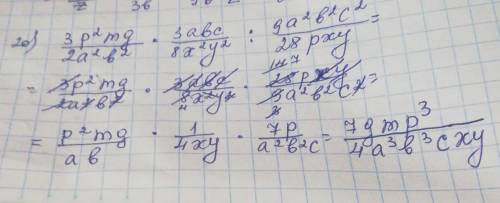 20) 3p²mq/2a²b² · 3abc/8x²y² : 9a²b²c²/28pxy =
= 3p²mq/2a²b² · 3abc/8x²y² · 28pxy/9a²b²c² =
= p²mq/ab · 1/4xy · 7p/a²b²c = 7qmp³/4a³b³cxy